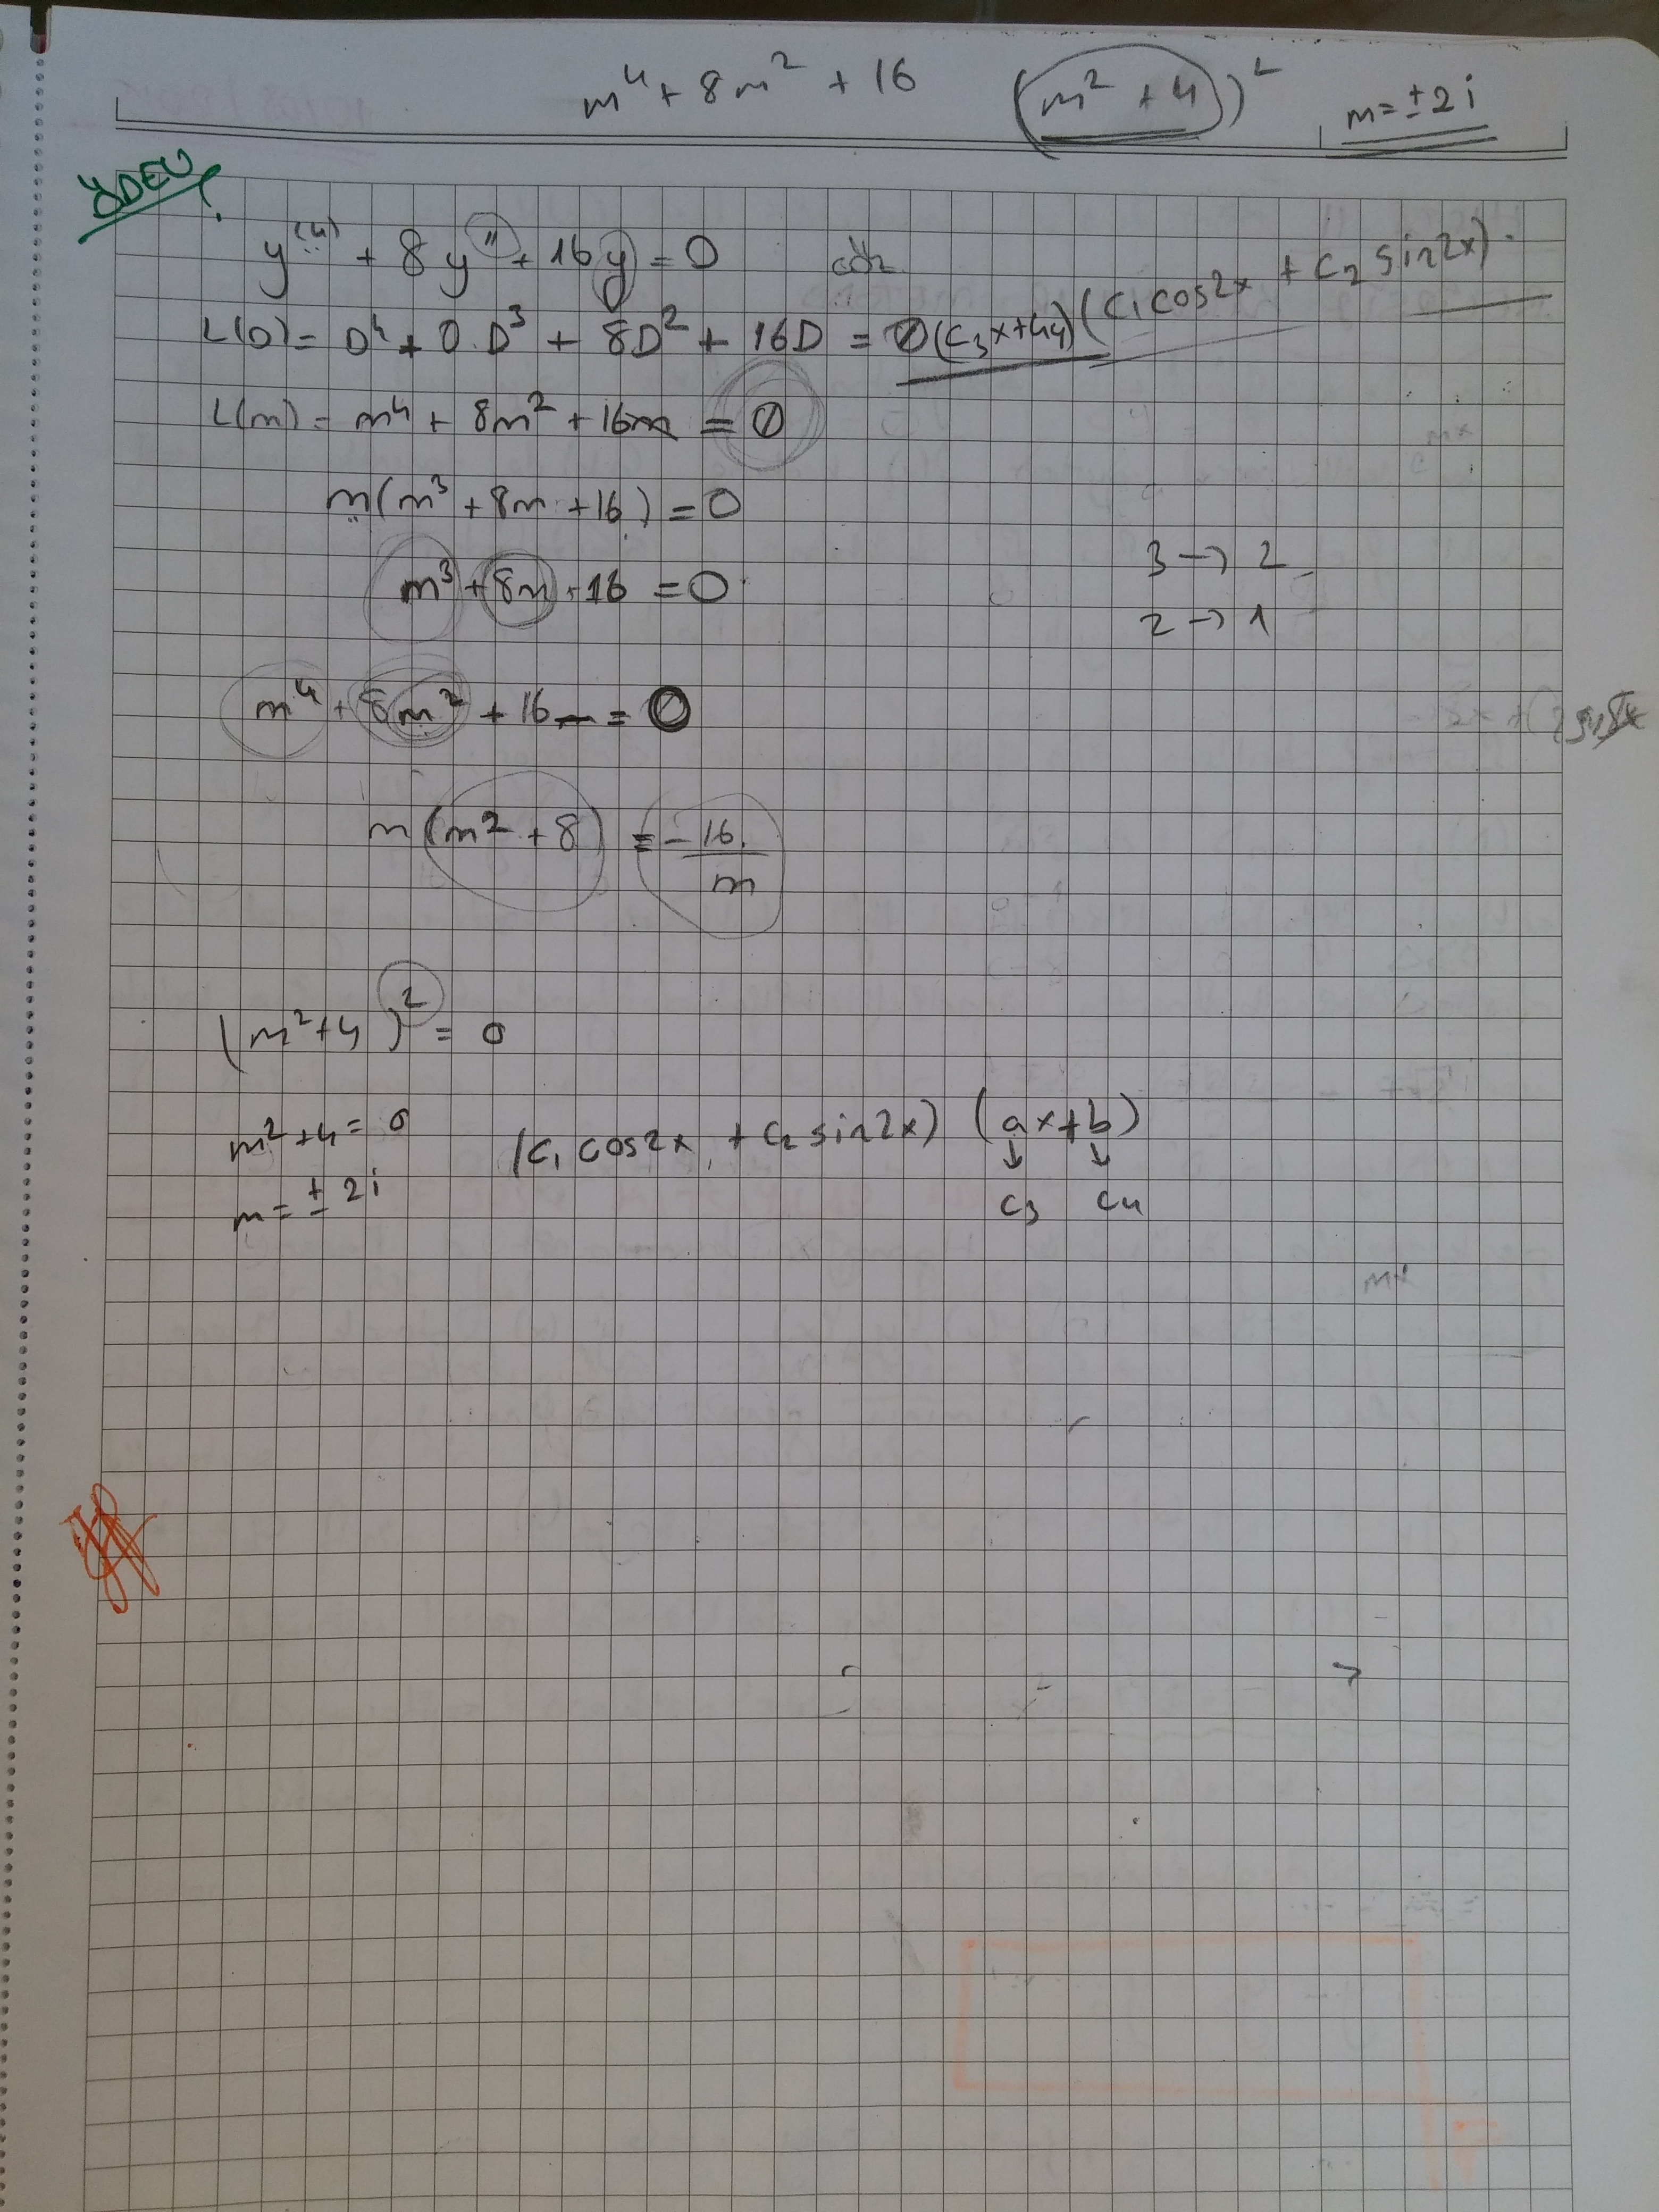 m⁴ + 8m² + 16 (m² + 4)² m = ± 2i
ÖDEV
y⁽⁴⁾ + 8y'' + 16y = 0 çöz
L(D) = D⁴ + 0.D³ + 8D² + 16D = 0 (c₃x+c₄) (c₁cos2x + c₂ sin2x)
L(m) = m⁴ + 8m² + 16m = 0
m(m³ + 8m + 16) = 0
m³ + 8m + 16 = 0
3 → 2
2 → 1
m⁴ + 8m² + 16m = 0
m(m² + 8) = -16/m
(m²+4)² = 0
m²+4 = 0 (c₁ cos2x + c₂ sin2x) (ax+b)
m = ± 2i c₃ c₄